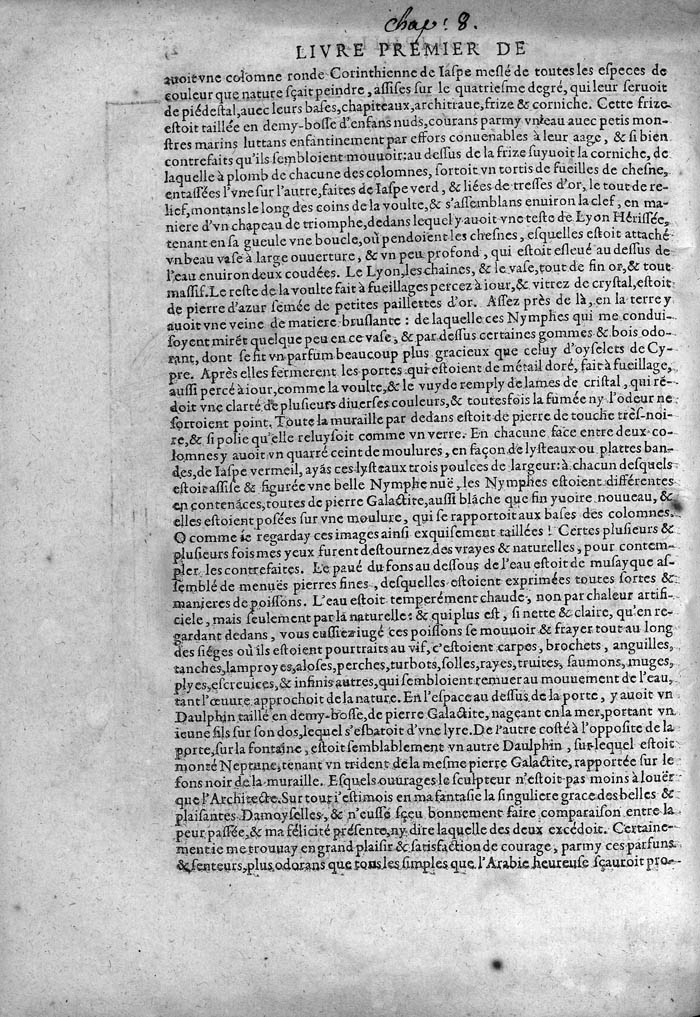 chap: 8.
LIVRE PREMIER DE
auoit vne colomne ronde Corinthienne de Iaspe meslé de toutes les especes de
couleur que nature sçait peindre, assises sur le quatriesme degré, qui leur seruoit
de piédestal, auec leurs bases, chapiteaux, architraue, frize & corniche. Cette frize
estoit taillée en demy-bosse d'enfans nuds, courans parmy vn'eau auec petis mon-
stres marins luttans enfantinement par effors conuenables à leur aage, & si bien
contrefaits qu'ils sembloient mouuoir: au dessus de la frize suyuoit la corniche, de
laquelle à plomb de chacune des colomnes, sortoit vn tortis de fueilles de chesne,
entassées l'vne sur l'autre, faites de Iaspe verd, & liées de tresses d'or, le tout de re-
lief, montans le long des coins de la voulte, & s'assemblans enuiron la clef, en ma-
niere d'vn chapeau de triomphe, dedans lequel y auoit vne teste de Lyon Hérissée,
tenant en sa gueule vne boucle, où pendoient les chesnes, esquelles estoit attaché
vn beau vase à large ouuerture, & vn peu profond, qui estoit esleué au dessus de
l'eau enuiron deux coudées. Le Lyon, les chaines, & le vase, tout de fin or, & tout
massif. Le reste de la voulte fait à fueillages percez à iour, & vitrez de crystal, estoit
de pierre d'azur semée de petites paillettes d'or. Assez près de là, en la terre y
auoit vne veine de matiere bruslante: de laquelle ces Nymphes qui me condui-
soyent mirẽt quelque peu en ce vase, & par dessus certaines gommes & bois odo-
rant, dont se fit vn parfum beaucoup plus gracieux que celuy d'oyselets de Cy-
pre. Après elles fermerent les portes qui estoient de métail doré, fait à fueillage,
aussi percé à iour, comme la voulte, & le vuyde remply de lames de cristal, qui rẽ-
doit vne clarté de plusieurs diuerses couleurs, & toutesfois la fumée ny l'odeur ne
sortoient point. Toute la muraille par dedans estoit de pierre de touche très-noi-
re, & si polie qu'elle reluysoit comme vn verre. En chacune face entre deux co-
lomnes y auoit vn quarré ceint de moulures, en façon de lysteaux ou plattes ban-
des, de Iaspe vermeil, ayãs ces lysteaux trois poulces de largeur: à chacun desquels
estoit assise & figurée vne belle Nymphe nuë, les Nymphes estoient différentes
en contenãces, toutes de pierre Galactite, aussi blãche que fin yuoire nouueau, &
elles estoient posées sur vne moulure, qui se rapportoit aux bases des colomnes.
O comme ie regarday ces images ainsi exquisement taillées! Certes plusieurs &
plusieurs fois mes yeux furent destournez des vrayes & naturelles, pour contem-
pler les contrefaites. Le paué du fons au dessous de l'eau estoit de musayque as-
semblé de menuës pierres fines, desquelles estoient exprimées toutes sortes &
manieres de poissons. L'eau estoit temperément chaude, non par chaleur artifi-
ciele, mais seulement par la naturelle: & qui plus est, si nette & claire, qu'en re-
gardant dedans, vous eussiez iugé ces poissons se mouuoir & frayer tout au long
des siéges où ils estoient pourtraits au vif, c'estoient carpes, brochets, anguilles,
tanches, lamproyes, aloses, perches, turbots, solles, rayes, truites, saumons, muges,
plyes, escreuices, & infinis autres, qui sembloient remuer au mouuement de l'eau,
tant l'œuure approchoit de la nature. En l'espace au dessus de la porte, y auoit vn
Daulphin taillé en demy-bosse, de pierre Galactite, nageant en la mer, portant vn
ieune fils sur son dos, lequel s'esbatoit d'vne lyre. De l'autre costé à l'opposite de la
porte, sur la fontaine, estoit semblablement vn autre Daulphin, sur lequel estoit
monté Neptune, tenant vn trident de la mesme pierre Galactite, rapportée sur le
fons noir de la muraille. Esquels ouurages le sculpteur n'estoit pas moins à louër
que l'Architecte. Sur tout i'estimois en ma fantasie la singuliere grace des belles &
plaisantes Damoyselles, & n'eusse sçeu bonnement faire comparaison entre la
peur passée, & ma félicité présente, ny dire laquelle des deux excédoit. Certaine-
ment ie me trouuay en grand plaisir & satisfaction de courage, parmy ces parfuns
& senteurs, plus odorans que tous les simples que l'Arabie heureuse sçauroit pro-